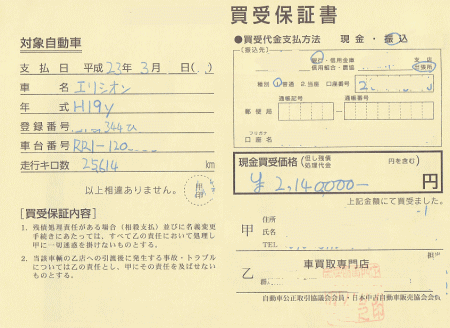 買受保証書
対象自動車
支払日 平成23年3月 日( )
車名 エリシオン
年式 H19y
登録番号 344ひ
車台番号 RR1-120
走行キロ数 25,614 km
以上相違ありません。
【買受保証内容】
1. 残債処理責任がある場合(相殺支払)並びに名義変更
手続きにあたっては、すべて乙の責任において処理し
甲に一切迷惑を掛けないものとする。
2. 当該車輌の乙店への引渡後に発生する事故・トラブル
については乙の責任とし、甲にその責任を及ばせない
ものとする。
●買受代金支払方法 現金・振込
(振込先)
銀行・信用金庫
信用組合・農協
支店
出張所
種別 1.普通 2.当座 口座番号
郵便局
通帳記号 通帳番号
フリガナ
口座名
現金買受価格(但し残債処理代金 円を含む)
¥2,140,000- 円
上記金額にて買受ました。
甲
住所
氏名
TEL
乙
車買取専門店
自動車公正取引協議会会員・日本中古自動車販売協会会員